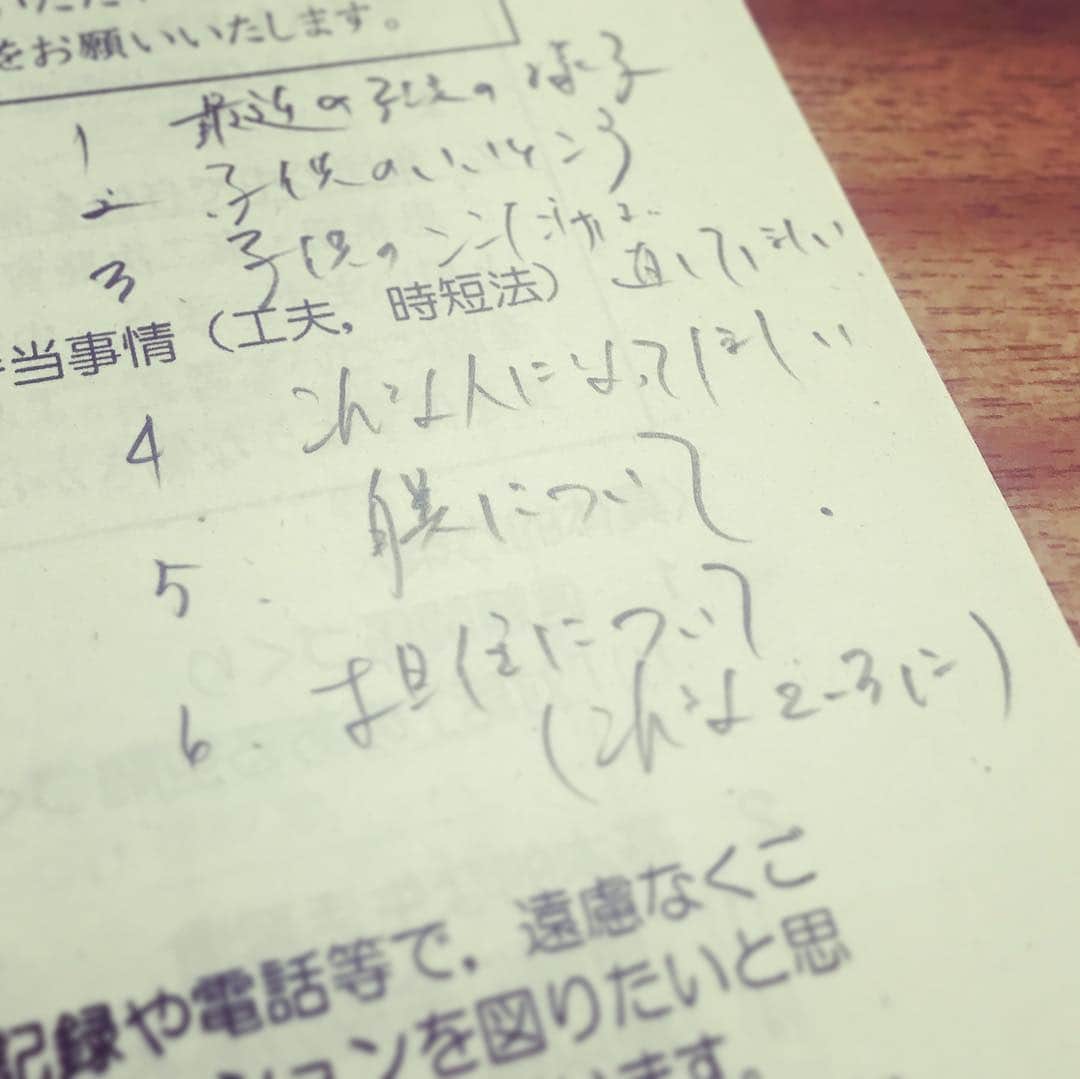 をお願いいたします。
1 最近の子供の様子
2 子供のいいところ
3 子供の
直してほしい
当事情（工夫，時短法）
4 こんな人になってほしい
5. 躾について
6. お日
について
（こんなところに）
記録や電話等で，遠慮なくご
ションを図りたいと思
ます。